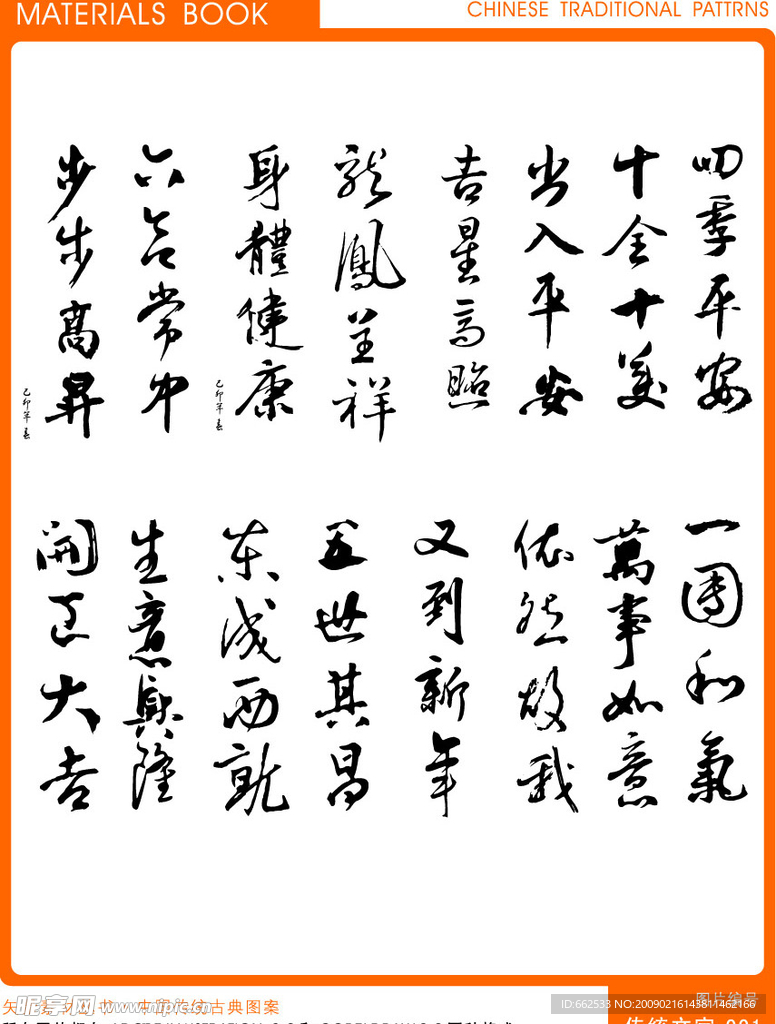 MATERIALS BOOK
CHINESE TRADITIONAL PATTRNS
四季平安
十全十美
出入平安
吉星高照
龍鳳呈祥
身體健康
己卯年春
六合常中
步步高昇
己卯年春
一團和氣
萬事如意
依然故我
又到新年
五世其昌
东成西就
生意興隆
開正大吉
传统古典图案
昵享网 www.nipic.cn
图片编号
ID:662533 NO:20090216143811462166